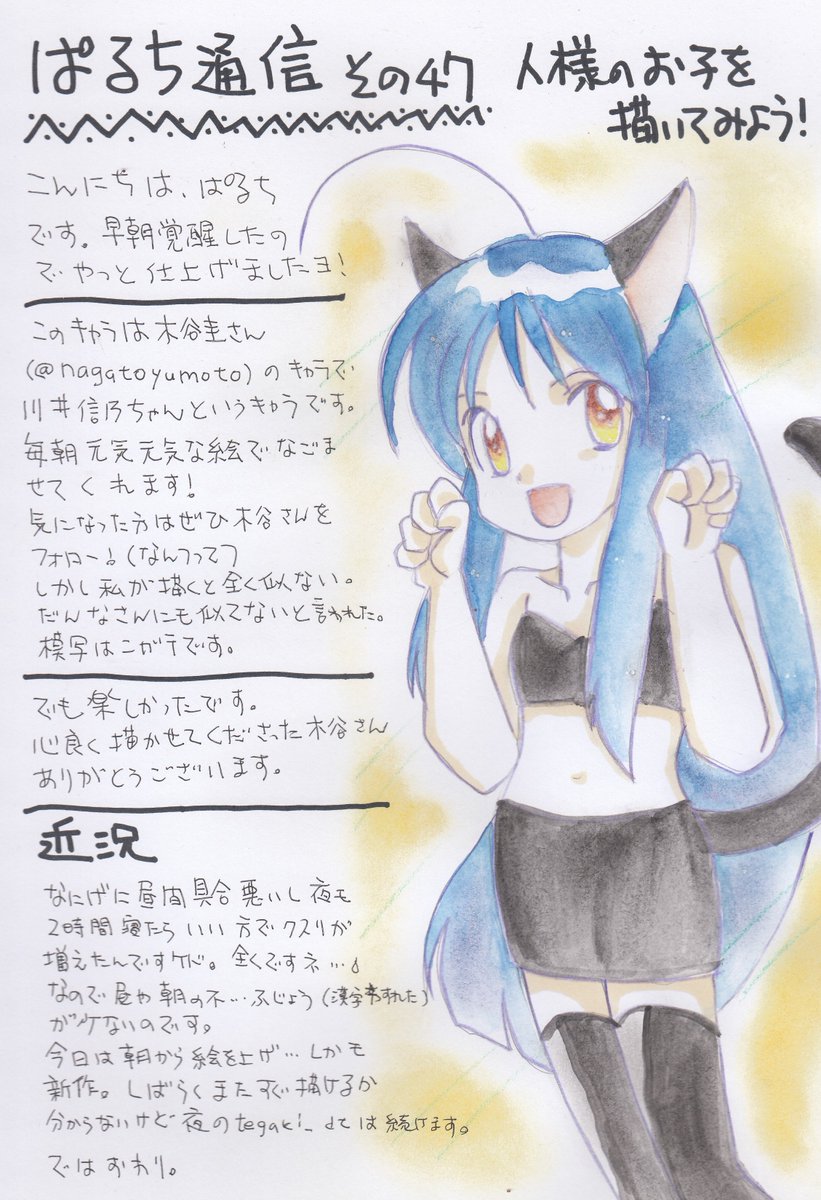 ぱるち通信 その47 人様のお子を
描いてみよう!
こんにちは、ぱるち
です。早朝覚醒したの
でやっと仕上げましたヨ!
このキャラは木谷圭さん
(@nagatoyumoto)のキャラで
川井信乃ちゃんというキャラです。
毎朝元気元気な絵でなごま
せてくれます!
気になった方はぜひ木谷さんを
フォロー♪(なんつってつ
しかし私が描くと全く似ない。
だんなさんにも似てないと言われた。
模写はニガテです。
でも楽しかったです。
心良く描かせてくださった木谷さん
ありがとうございます。
近況
なにげに昼間具合悪いし夜も
2時間寝たらいい方でクスリが
増えたんですケド。全くですネ…♪
なので昼や朝の不…ふじょう(漢字忘れた)
がケないのです。
今日は朝から絵を上げ…しかも
新作。しばらくまたすぐ描けるか
分からないけど夜のtegaki_dtは続けます。
ではおわり。